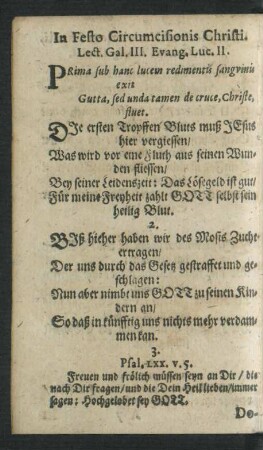 In Festo Circumcisionis Christi.
Lect. Gal. III. Evang. Luc. II.
PRima sub hanc lucem redimentis sangvinis
exit
Gutta, sed unda tamen de cruce, Christe,
fluet.
DIe ersten Tropffen Bluts muß JEsus
hier vergiessen/
Was wird vor eine Fluth aus seinen Wun-
den fliessen/
Bey seiner Leidenszeit: Das Lösegeld ist gut/
Für meine Freyheit zahlt GOTT selbst sein
heilig Blut.
2.
BIß hieher haben wir des Mosis Zucht
ertragen/
Der uns durch das Gesetz gestraffet und ge-
schlagen:
Nun aber nimbt uns GOTT zu seinen Kin-
dern an/
So daß in künfftig uns nichts mehr verdam-
men kan.
3.
Psal. LXX. v. 5.
Freuen und frölich müssen seyn an Dir/ die
nach Dir fragen/ und die Dein Heil lieben/ immer
sagen: Hochgelobet sey GOTT.
De-